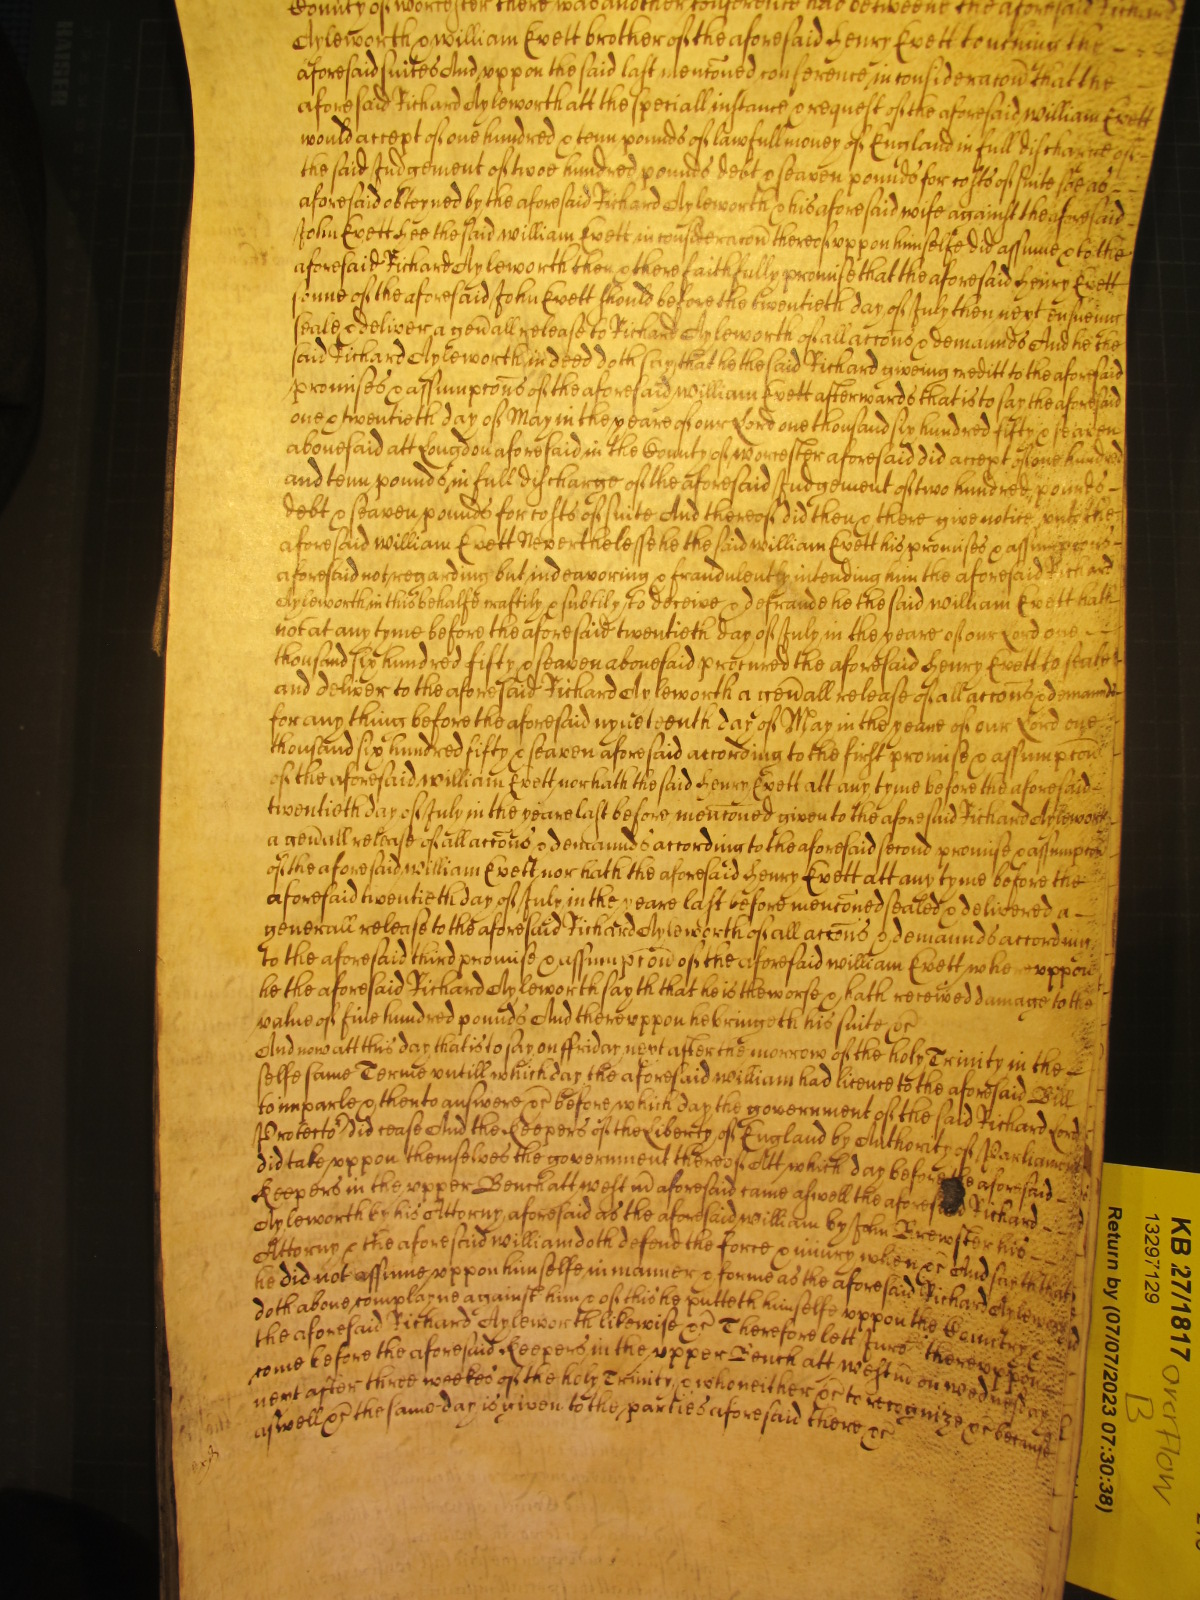 County of Worcester there was another conference had betweene the aforesaid Richard
Ayleworth & William Evett brother of the aforesaid Henry Evett touching the
aforesaid suites And uppon the said last menc̄oned conference in considerac̄on that the
aforesaid Richard Ayleworth att the speciall instance & request of the aforesaid William Evett
would accept of one hundred & tenn pounds of lawfull money of England in full discharge of
the said Judgement of twoe hundred pounds debt & seaven pounds for costs of suite soe as
aforesaid obteyned by the aforesaid Richard Ayleworth & his aforesaid wife against the aforesaid
John Evett hee the said William Evett in considerac̄on thereof uppon himselfe did assume & to the
aforesaid Richard Ayleworth then & there faithfully promise that the aforesaid Henry Evett
sonne of the aforesaid John Evett should before the twentieth day of July then next ensueing
seale & deliver a gen̄all release to Richard Ayleworth of all acc̄ons & demaunds And he the
said Richard Ayleworth in deed doth say that he the said Richard giveing creditt to the aforesaid
promises & assumpc̄ons of the aforesaid William Evett afterwards that is to say the aforesaid
one & twentieth day of May in the yeare of our Lord one thousand six hundred fifty & seaven
abovesaid att Longdon aforesaid in the County of Worcester aforesaid did accept of one hundred
and tenn pounds in full discharge of the aforesaid Judgement of two hundred pounds
debt & seaven pounds for costs of suite And thereof did then & there give notice unto the
aforesaid William Evett Neverthelesse he the said William Evett his promises & assumpc̄ons
aforesaid not regarding but indeavoring & fraudulently intending him the aforesaid Richard
Ayleworth in this behalfe craftily & subtily to deceive & defraude he the said William Evett hath
not at any tyme before the aforesaid twentieth day of July in the yeare of our Lord one
thousand six hundred fifty & seaven abovesaid procured the aforesaid Henry Evett to seale
and deliver to the aforesaid Richard Ayleworth a gen̄all release of all acc̄ons & demaunds
for any thing before the aforesaid nyneteenth day of May in the yeare of our Lord one
thousand six hundred fifty & seaven aforesaid according to the first promise & assumpc̄on
of the aforesaid William Evett nor hath the said Henry Evett att any tyme before the aforesaid
twentieth day of July in the yeare last before menc̄oned given to the aforesaid Richard Ayleworth
a gen̄all release of all acc̄ons & demaunds according to the aforesaid second promise & assumpc̄on
of the aforesaid William Evett nor hath the aforesaid Henry Evett att any tyme before the
aforesaid twentieth day of July in the yeare last before menc̄oned sealed & delivered a
generall release to the aforesaid Richard Ayleworth of all acc̄ons & demaunds according
to the aforesaid third promise & assumpc̄on of the aforesaid William Evett whereuppon
he the aforesaid Richard Ayleworth sayth that he is the worse & hath received damage to the
value of five hundred pounds And thereuppon he bringeth his suite &c̄
And now att this day that is to say on ffriday next after the morrow of the holy Trinity in the
selfe same Terme untill which day the aforesaid William had licence to the aforesaid Bill
to imparle & then to answere &c̄ before which day the government of the said Richard Lord
Protector did cease And the Keepers of the Liberty of England by Authority of Parliament
did take uppon themselves the government thereof Att which day before the aforesaid
Keepers in the upper Bench att Westm̄ aforesaid came aswell the aforesaid Richard
Ayleworth by his Attorny aforesaid as the aforesaid William by John Brewster his
Attorny & the aforesaid William doth defend the force & injury when &c̄ And saith that
he did not assume uppon himselfe in manner & forme as the aforesaid Richard Ayleworth
doth above complayne against him & of this he putteth himselfe uppon the Country &
the aforesaid Richard Ayleworth likewise &c̄ Therefore lett Jure thereuppon
come before the aforesaid Keepers in the upper Bench att Westm̄ on Wednesday
next after three weekes of the holy Trinity & who neither &c̄ to recognize &c̄ because
aswell &c̄ the same day is given to the parties aforesaid there &c̄
KB 27/1817 OverFlow
B
13297129
Return by (07/07/2023 07:30:38)